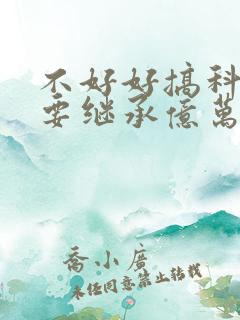 不好好搞科
要继承億萬
喬小廣
未经同意禁止转载